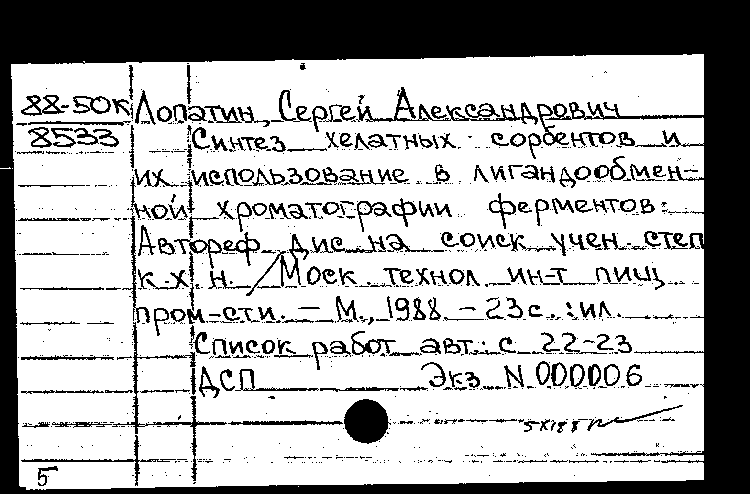 88-50К Лопатин, Сергей Александрович
8533 Синтез хелатных сорбентов и
их использование в лигандообмен-
ной хроматографии ферментов:
Автореф. дис. на соиск. учен. степ.
к.х.н. / Моск. технол. ин-т пищ.
пром-сти. – М., 1988. – 23 с. : ил.
Список работ авт.: с. 22-23
ДСП Экз. N 000006
5